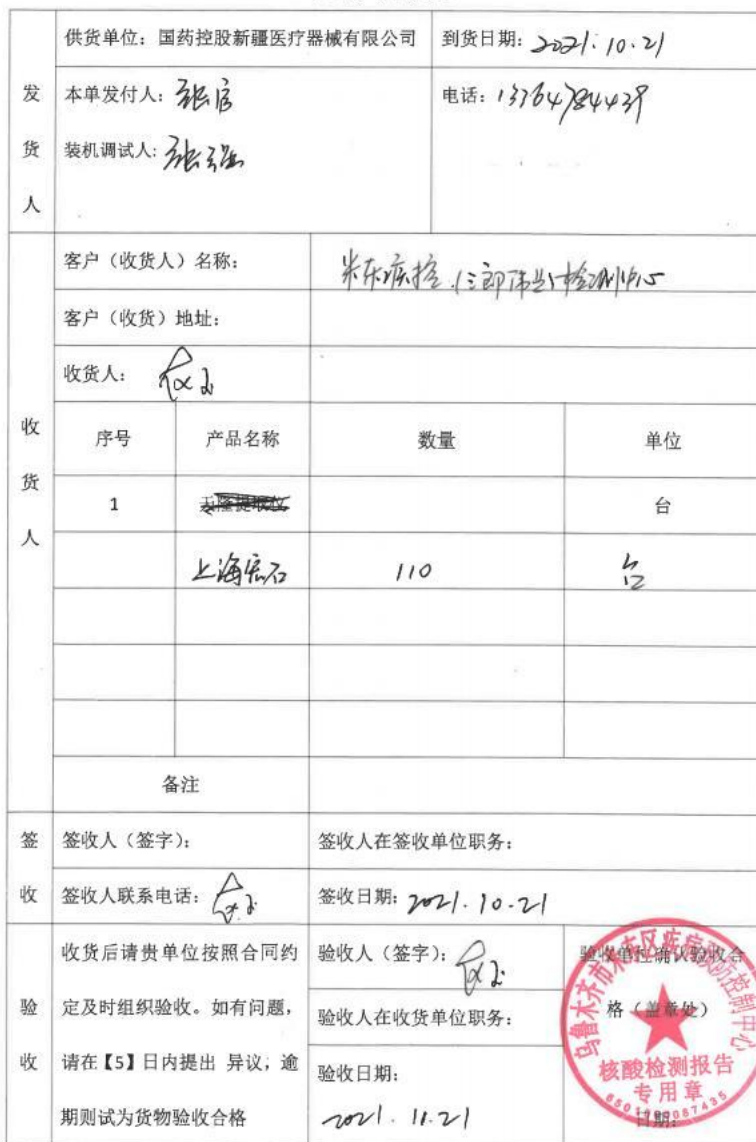 供货单位：国药控股新疆医疗器械有限公司 到货日期：2021.10.21
发货人
本单发付人： 电话：
装机调试人：张强
客户（收货人）名称：米东疾控
客户（收货）地址：
收货人：
收货人
序号 产品名称 数量 单位
1 天隆提取仪 台
上海宏石 110 台
备注
签收
签收人（签字）： 签收人在签收单位职务：
签收人联系电话： 签收日期：2021.10.21
验收
收货后请贵单位按照合同约
定及时组织验收。如有问题，
请在【5】日内提出 异议，逾
期则试为货物验收合格
验收人（签字）：
验收人在收货单位职务：
验收日期：
2021.11.21
验收单位确认验收合
格（盖章处）
日期：
乌鲁木齐市米东区疾病预防控制中心
核酸检测报告
专用章